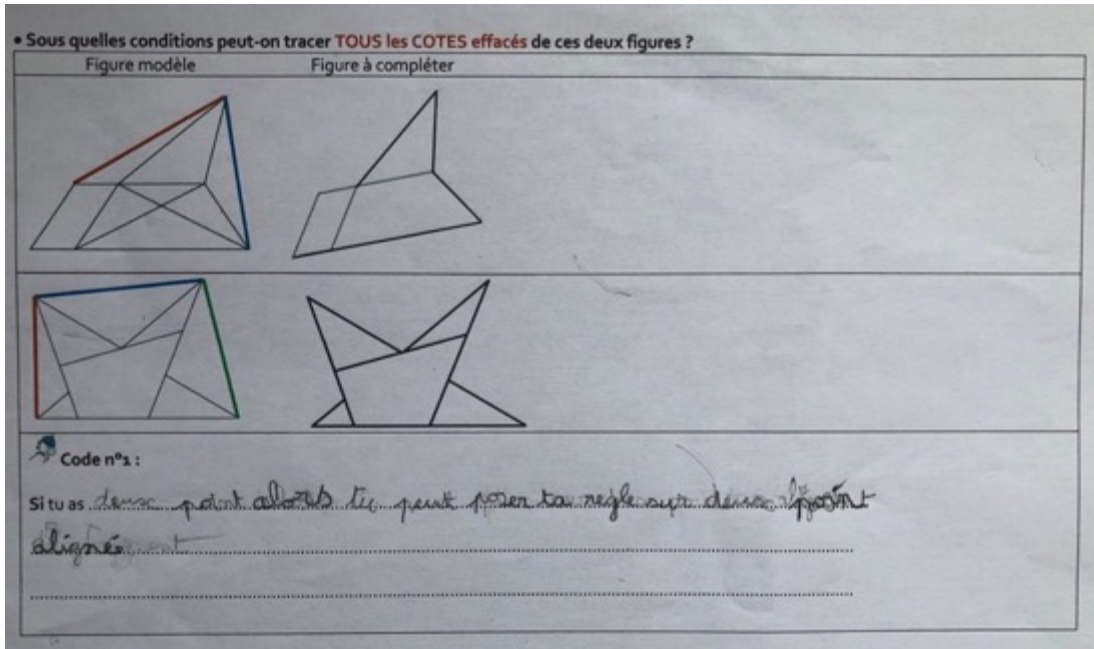 • Sous quelles conditions peut-on tracer TOUS les COTES effacés de ces deux figures ?
Figure modèle Figure à compléter
Code n°1 :
Si tu as deux point alors tu peut poser ta règle sur deux point
aligné